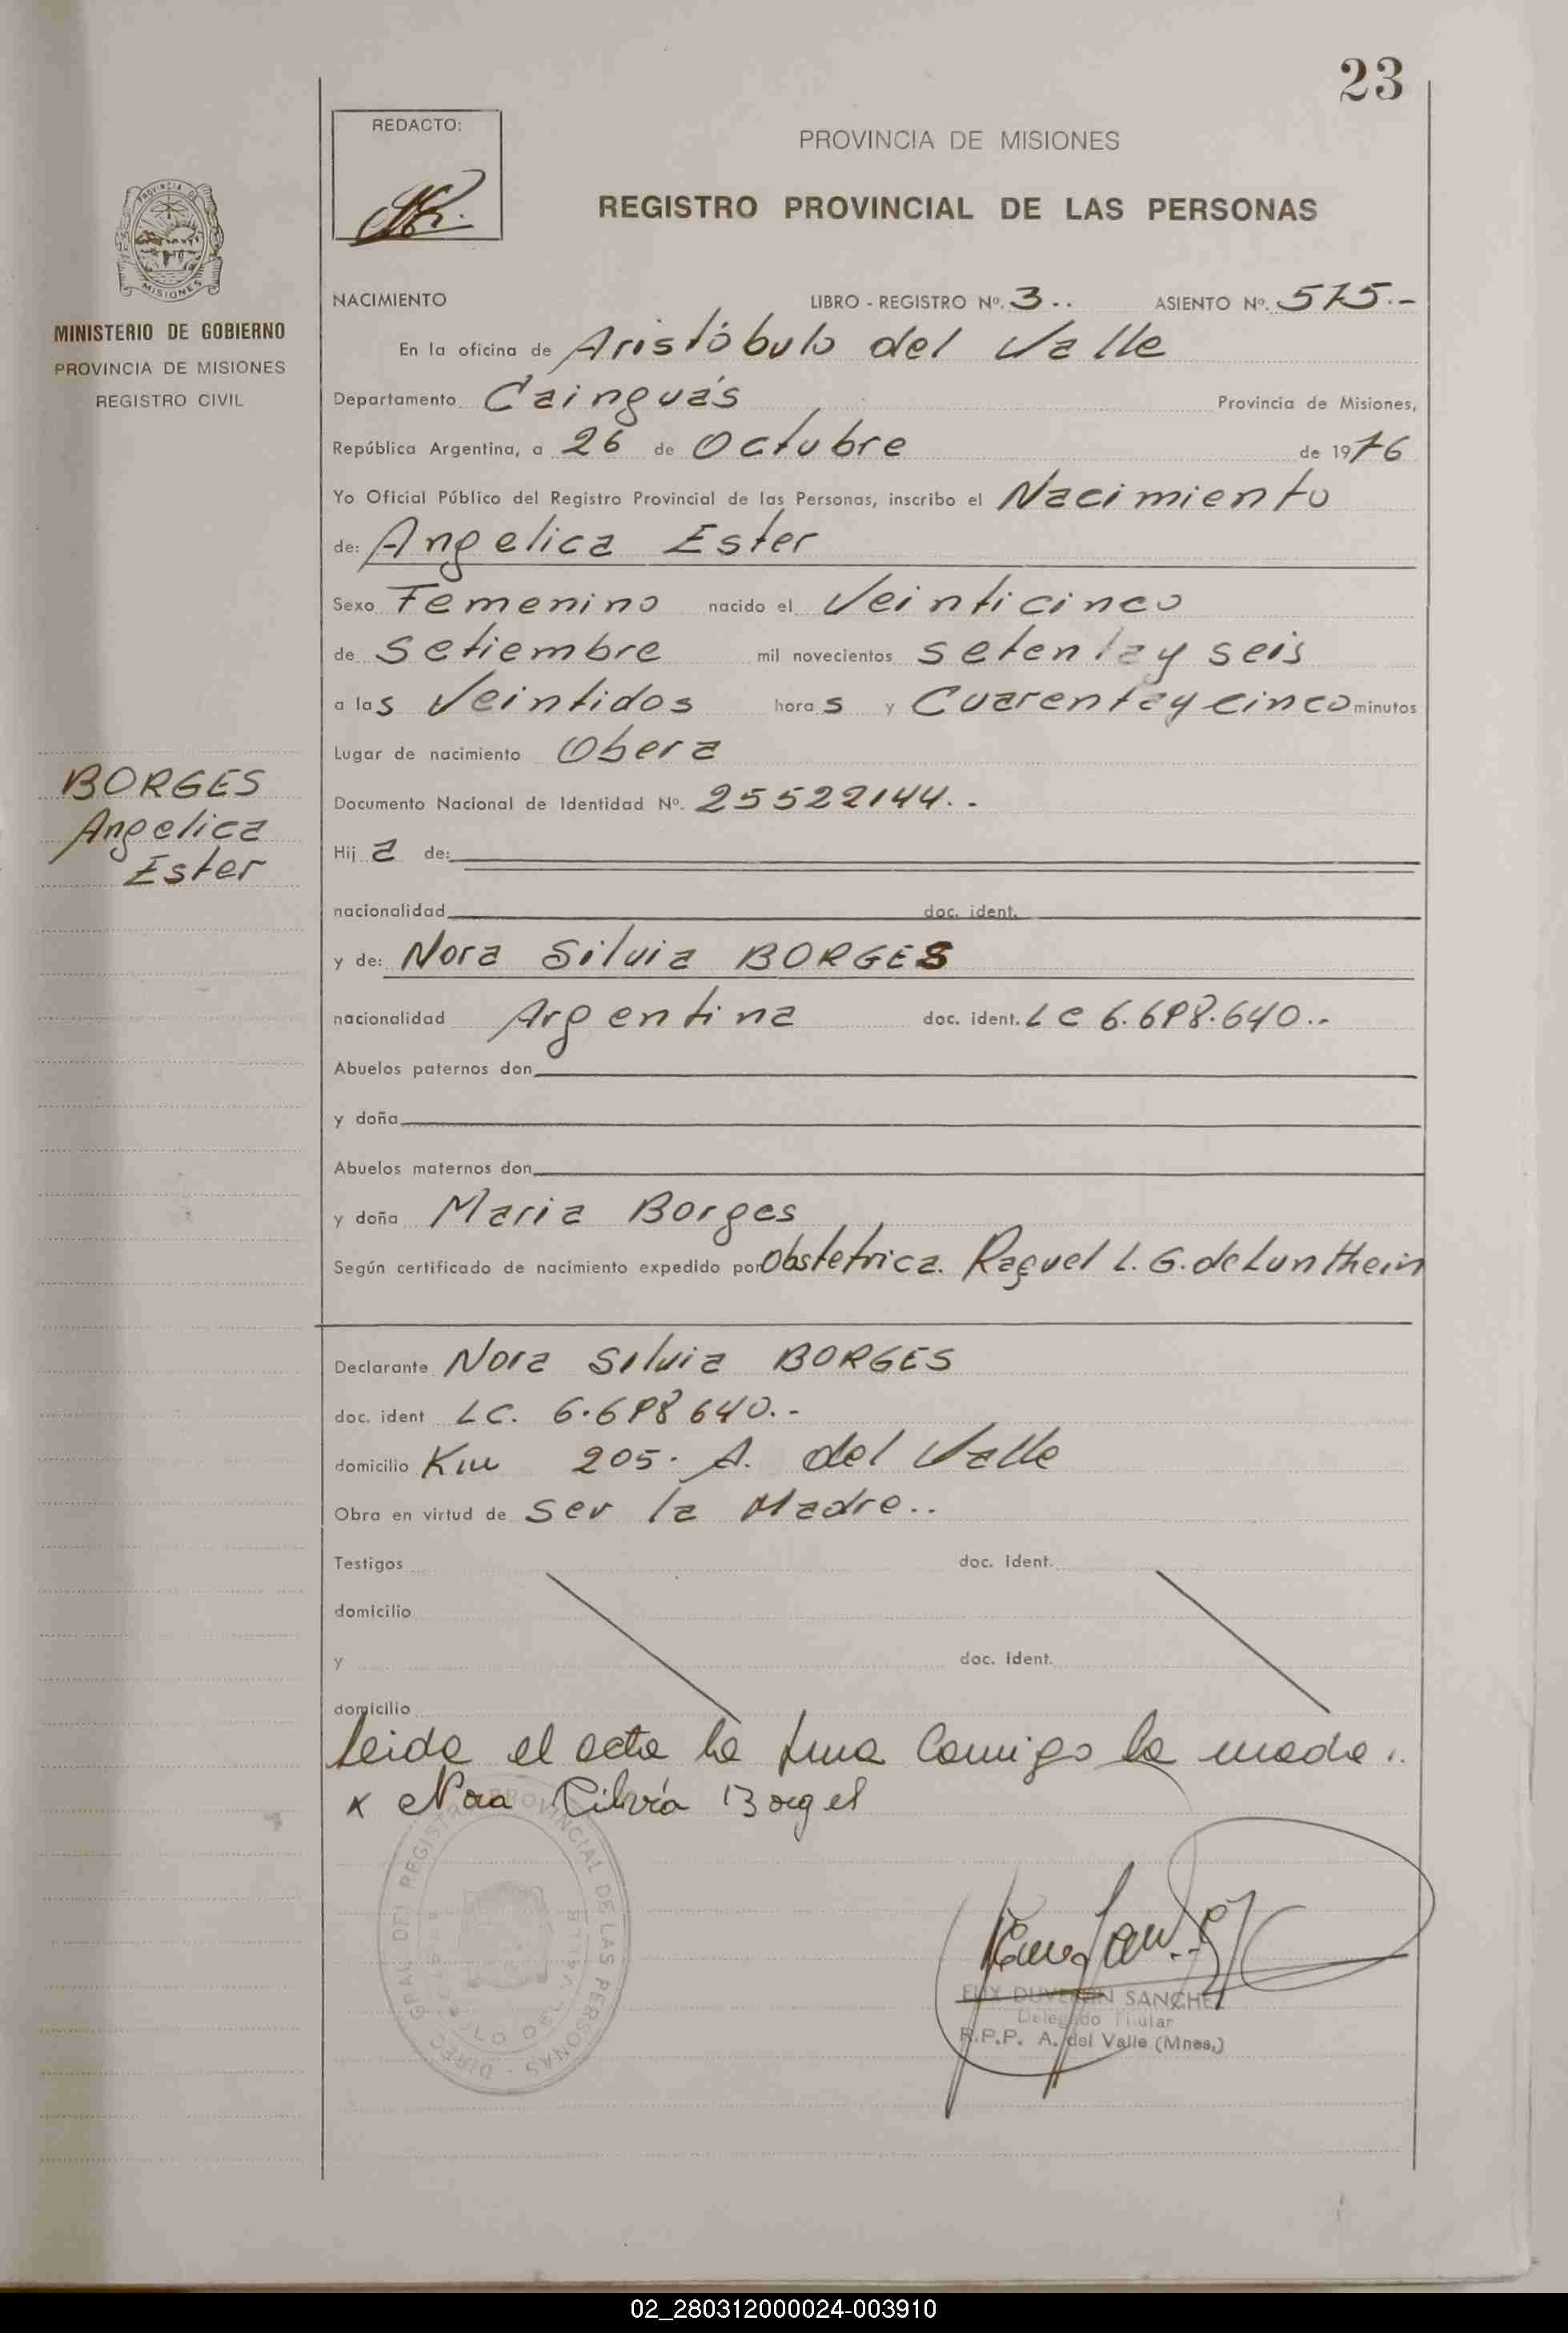 23
REDACTO:
PROVINCIA DE MISIONES
REGISTRO PROVINCIAL DE LAS PERSONAS
MISIONES
MINISTERIO DE GOBIERNO
PROVINCIA DE MISIONES
REGISTRO CIVIL
NACIMIENTO LIBRO - REGISTRO Nº. 3.. ASIENTO Nº. 575.-
En la oficina de Aristóbulo del Valle
Departamento Cainguás Provincia de Misiones,
República Argentina, a 26 de Octubre de 1976
Yo Oficial Público del Registro Provincial de las Personas, inscribo el Nacimiento
de: Angelica Ester
Sexo Femenino nacido el Veinticinco
de Setiembre mil novecientos setenta y seis
a las Veintidos horas y Cuarenta y cinco minutos
Lugar de nacimiento Obera
BORGES
Angelica
Ester
Documento Nacional de Identidad Nº. 25522144.-
Hija de:
nacionalidad doc. ident.
y de: Nora Silvia BORGES
nacionalidad Argentina doc. ident. LC 6.698.640.-
Abuelos paternos don
y doña
Abuelos maternos don
y doña Maria Borges
Según certificado de nacimiento expedido por Obstetrica. Raquel L. G. de Lunthein
Declarante Nora Silvia BORGES
doc. ident LC. 6.698640.-
domicilio Km 205. A. del Valle
Obra en virtud de Ser la Madre..
Testigos doc. Ident.
domicilio
y doc. Ident.
domicilio
Leida el acta la firma Comigo la madre.
x Nora Silvia Borges
DIREC. GRAL DEL REGISTRO PROVINCIAL DE LAS PERSONAS
SANCHEZ
Delegado Titular
R.P.P. A. del Valle (Mnes.)
02_280312000024-003910